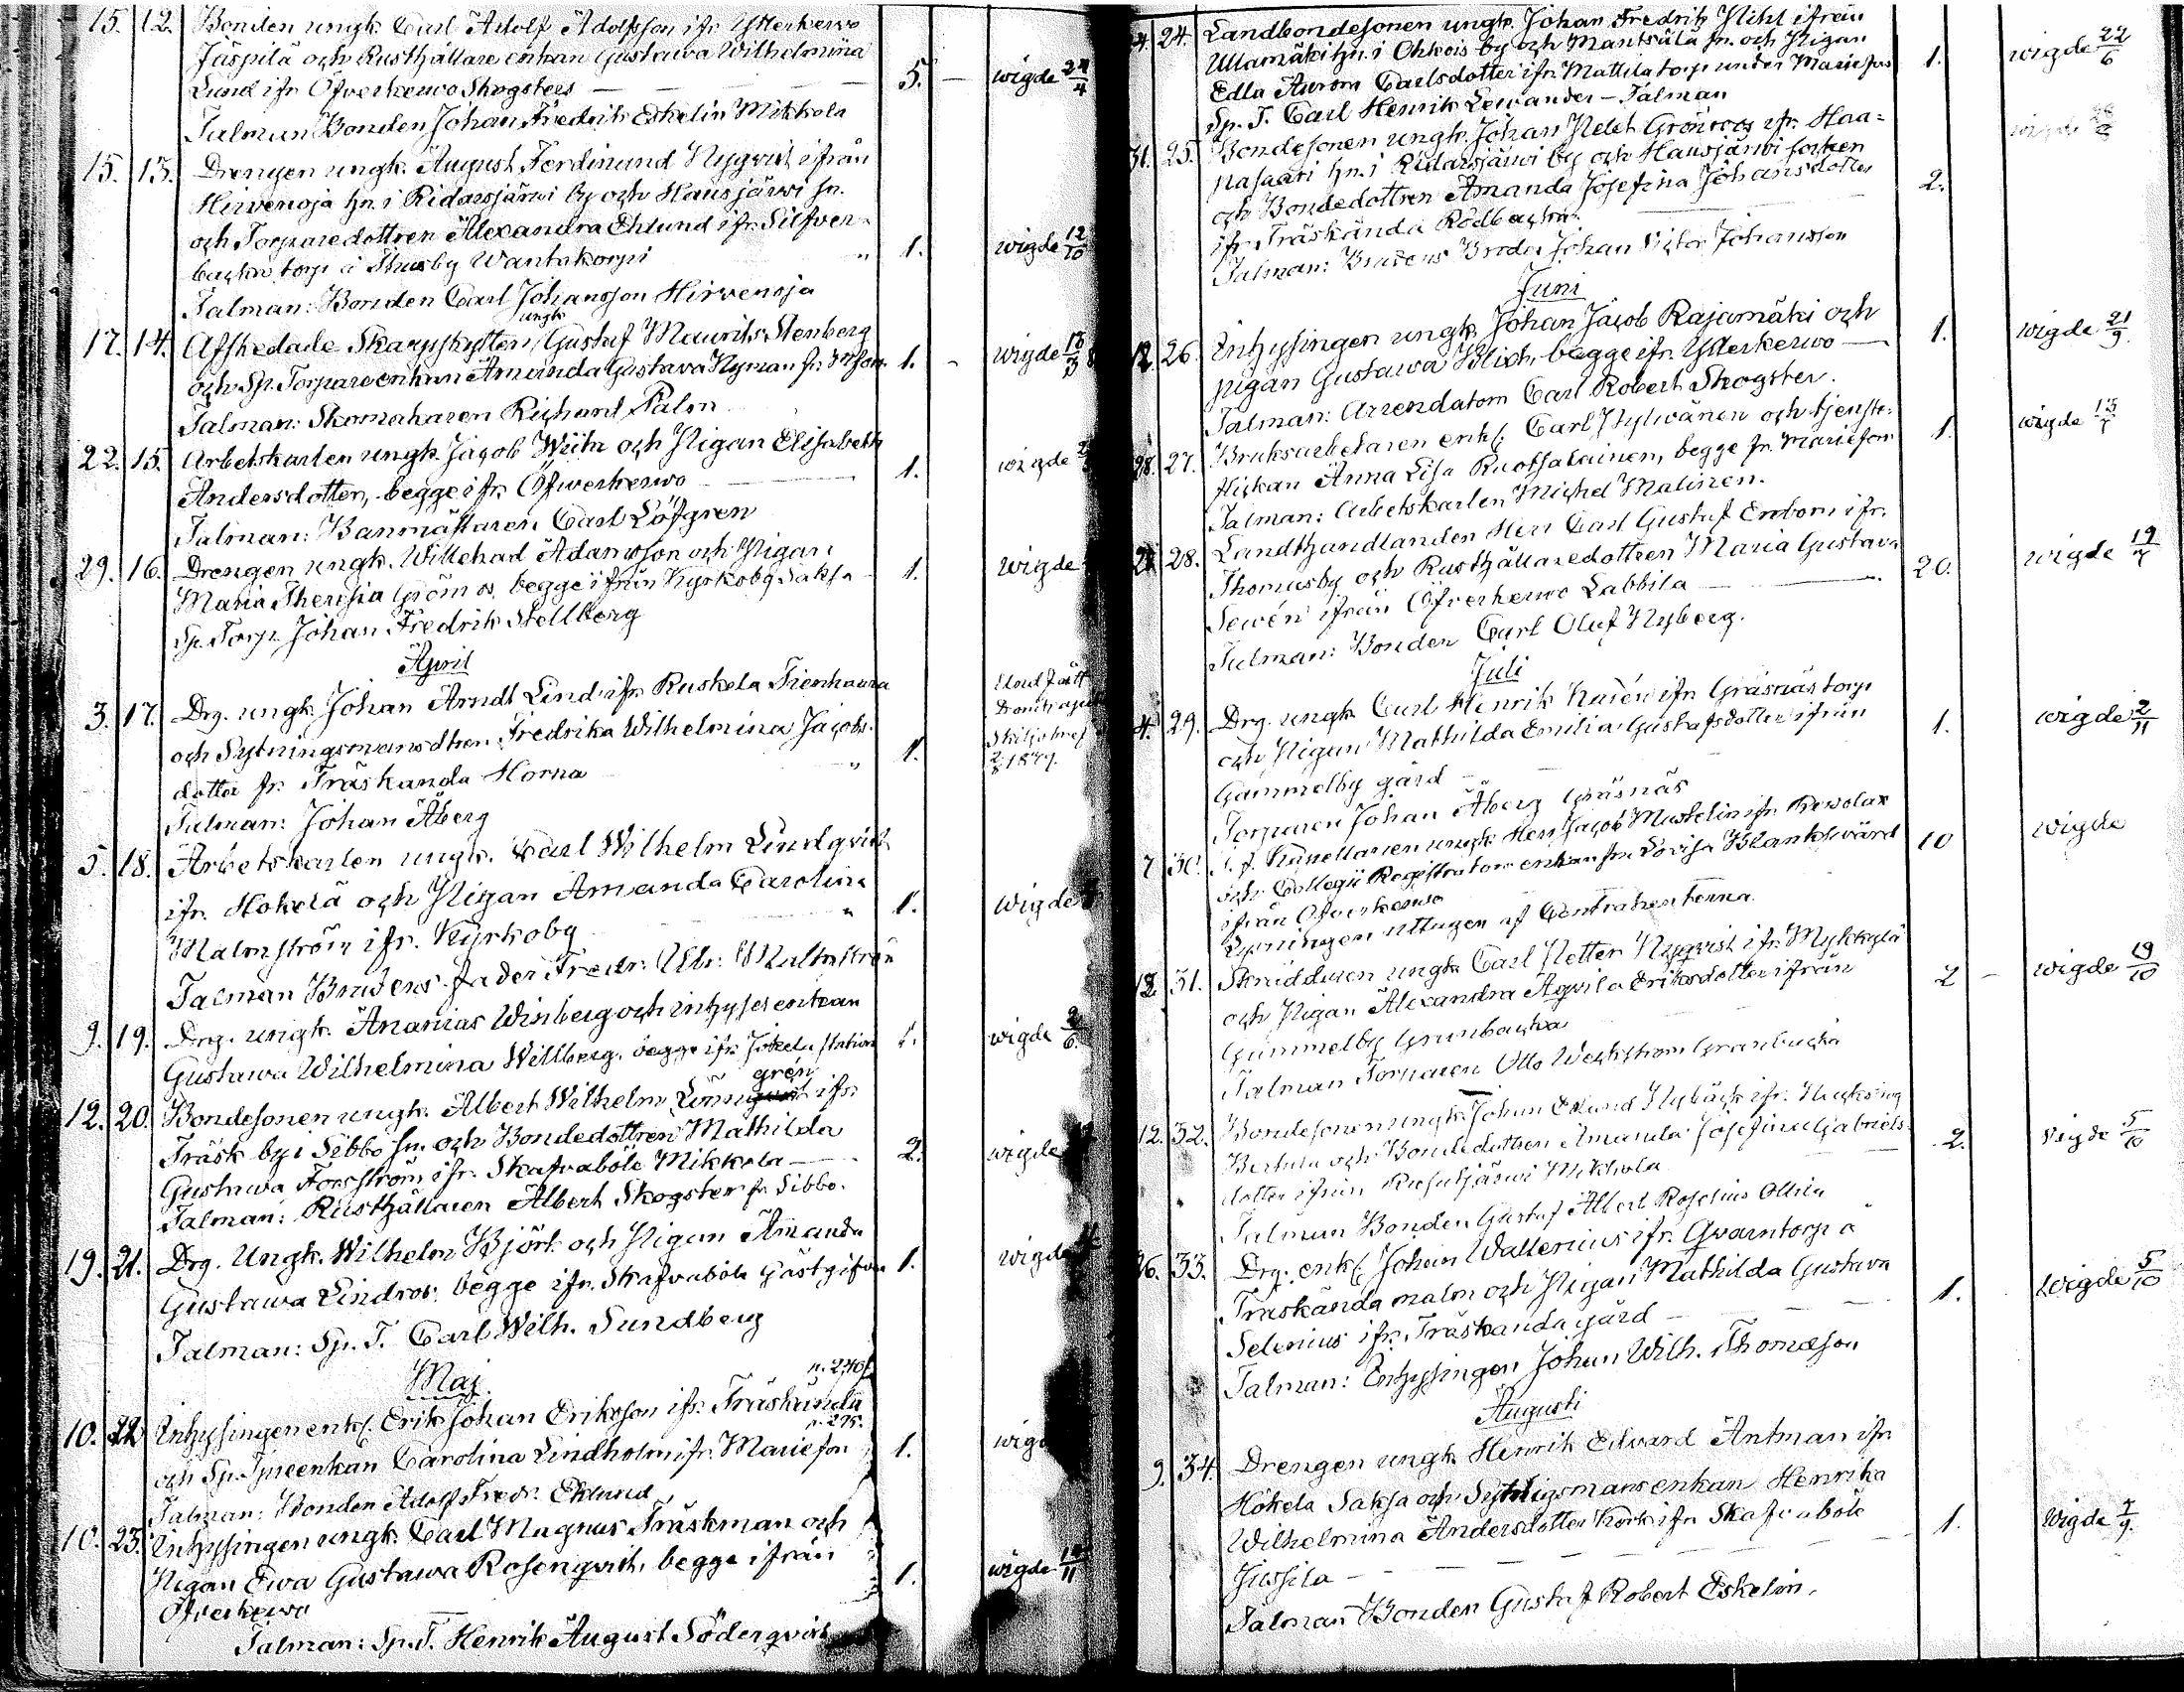 15. 12. Bonden ungk. Carl Adolf Adolfsson ifr Ytterkerwo
Juspila och Rusthållare enkan Gustawa Wilhelmina
Lund ifr Öfverkerwo Skogsters — 5. — wigde 24/4
Talman Bonden Johan Fredrik Eskelin Mikkola
15. 13. Drengen ungk. August Ferdinand Nyqvist ifrån
Hirvenoja hn. i Ridarsjärwi by och Hausjärwi sn.
och Torparedottren Alexandra Eklund ifr. Silfver-
backa torp å Skusby Wantakorpi " 1. wigde 12/10
Talman: Bonden Carl Johansson Hirvenoja
17. 14. Afskedade Skarpskytten ungk. Gustaf Maurits Stenberg
och Sp. Torpareenkan Amanda Gustava Nyman fr. 1. - wigde
Talman: Skomakaren Richard Palm
22. 15. Arbetskarlen ungk. Jacob Wiik och Pigan Elisabeth
Andersdotter, begge ifr. Öfwerkerwo 1. wigde
Talman: Banmästaren Carl Löfgren
29. 16. Drengen ungk. Willehad Adamsson och Pigan
Maria Theresia Gröm begge ifrån Kyrkoby Saksa 1. wigde
Sp. Torp. Johan Fredrik Stellberg
April
3. 17. Drg. ungk. Johan Arndt Lind ifr. Ruskela Tienhaara
och Sytningsmansdtren Fredrika Wilhelmina Jacobs-
dotter fr. Träskanda Horna " 1. 1877.
Talman: Johan Åberg
5. 18. Arbetskarlen ungk. Carl Wilhelm Lindqvist
ifr. Hokelä och Pigan Amanda Carolina
Malmström ifr. Kyrkoby " 1. wigde
Talman Brudens fader Fredr. Malmström
9. 19. Drg. ungk. Ananias Winberg och inhyses enkan
Gustawa Wilhelmina Willberg. begge ifr. Jokela station 1. wigde 2/6
12. 20. Bondesonen ungk. Albert Wilhelm Lönngren ifr.
Träsk by i Sibbo sn. och Bondedottren Mathilda
Gustawa Forsström ifr. Skafvaböle Mikkola — 2. wigde
Talman: Rusthållaren Albert Skogster fr Sibbo.
19. 21. Drg. Ungk. Wilhelm Björk och Pigan Amanda
Gustawa Lindroos. begge ifr. Skafvaböle Gästgifveri 1. wigde
Talman: Sp. T. Carl Wilh. Sundberg
Maj.
10. 22 Inhysingen enkl. Erik Johan Eriksson ifr. Träskanda
och Sp. Tpreenkan Carolina Lindholm ifr. Mariefors 1. wigde
Talman: Bonden Adolf Fredr. Eklund
10. 23. Inhysingen ungk. Carl Magnus Träskman och
Pigan Ewa Gustawa Rosenqvist, begge ifrån
Öfverkerwo 1. wigde
Talman: Sp. T. Henrik August Söderqvist
4. 24. Landbondesonen ungk. Johan Fredrik Pihl ifrån
Ullamäki hn. i Ohkois by och Mäntsälä sn. och Pigan
Edla Aurora Carlsdotter ifr Mattila torp under Mariefors 1. wigde 22/6
Sp. T. Carl Henrik Lewander - Talman
31. 25. Bondesonen ungk. Johan Grönroos ifr. Haa-
pasaari hn. i Ridarsjärwi by och Hausjärwi socken
och Bondedottren Amanda Josefina Johansdotter 2.
ifr. Träskända Rödbacka
Talman: Brudens Broder Johan Victor Johansson
Juni
12. 26. Inhysingen ungk. Johan Jacob Rajamäki och
pigan Gustawa Blix, begge ifr. Ytterkerwo — 1. wigde 21/9.
Talman: Arrendatorn Carl Robert Skogster.
28. 27. Bruksarbetaren enkl. Carl Pylwänen och tjenste-
flickan Anna Lisa Ruotsalainen, begge fr. Mariefors 1. wigde
Talman: Arbetskarlen Michel Malinen.
28. Landthandlanden Herr Carl Gustaf Enbom ifr.
Thomasby och Rusthållaredottren Maria Gustava
Sewén ifrån Öfverkerwo Labbila — 20. wigde 19/7
Talman: Bonden Carl Olof Nyberg.
Juli
4. 29. Drg. ungk. Carl Henrik Karén ifr Gräsnäs torp
och Pigan Mathilda Emilia Gustafsdotter ifrån 1. wigde 2/11
Gammelby gård
Torparen Johan Åberg Gräsnäs
7 30. Kapellanen ungk. Herr Jacob Mustelin ifr. Rewolax
och Collegii Registrators enkan fru Lovisa Blankswärd 10 wigde
ifrån Öfverkerwo
Lysningen uttagen af Contrahenterna.
12 31. Skräddaren ungk. Carl Petter Nyqvist ifr. Mykkylä
och Pigan Alexandra Aqvila Eriksdotter ifrån 2 — wigde 19/10
Gammelby Granbacka
Talman Torparen Otto Weckström Granbacka
12. 32. Bondesonen ungk. Johan Edvard Nybäck ifr. Nuckoing
Bertula och Bondedottren Amanda Josefina Gabriels- 2. wigde 5/10
dotter ifrån Rusutjärwi Mikkola
Talman Bonden Gustaf Albert Roselius Ollila
26. 33. Drg. enkl. Johan Wallenius ifr. Qvarntorp å
Träskända malm och Pigan Mathilda Gustava
Selenius ifr. Träskanda gård — 1. wigde 5/10
Talman: Inhysingen Johan Wilh. Thomasson
Augusti
9. 34. Drengen ungk. Henrik Edvard Antman ifr
Hökela Saksa och Sytningsmansenkan Henrika
Wilhelmina Andersdotter Kork ifr Skafvaböle 1. wigde
Jussila
Talman Bonden Gustaf Robert Eskelin.